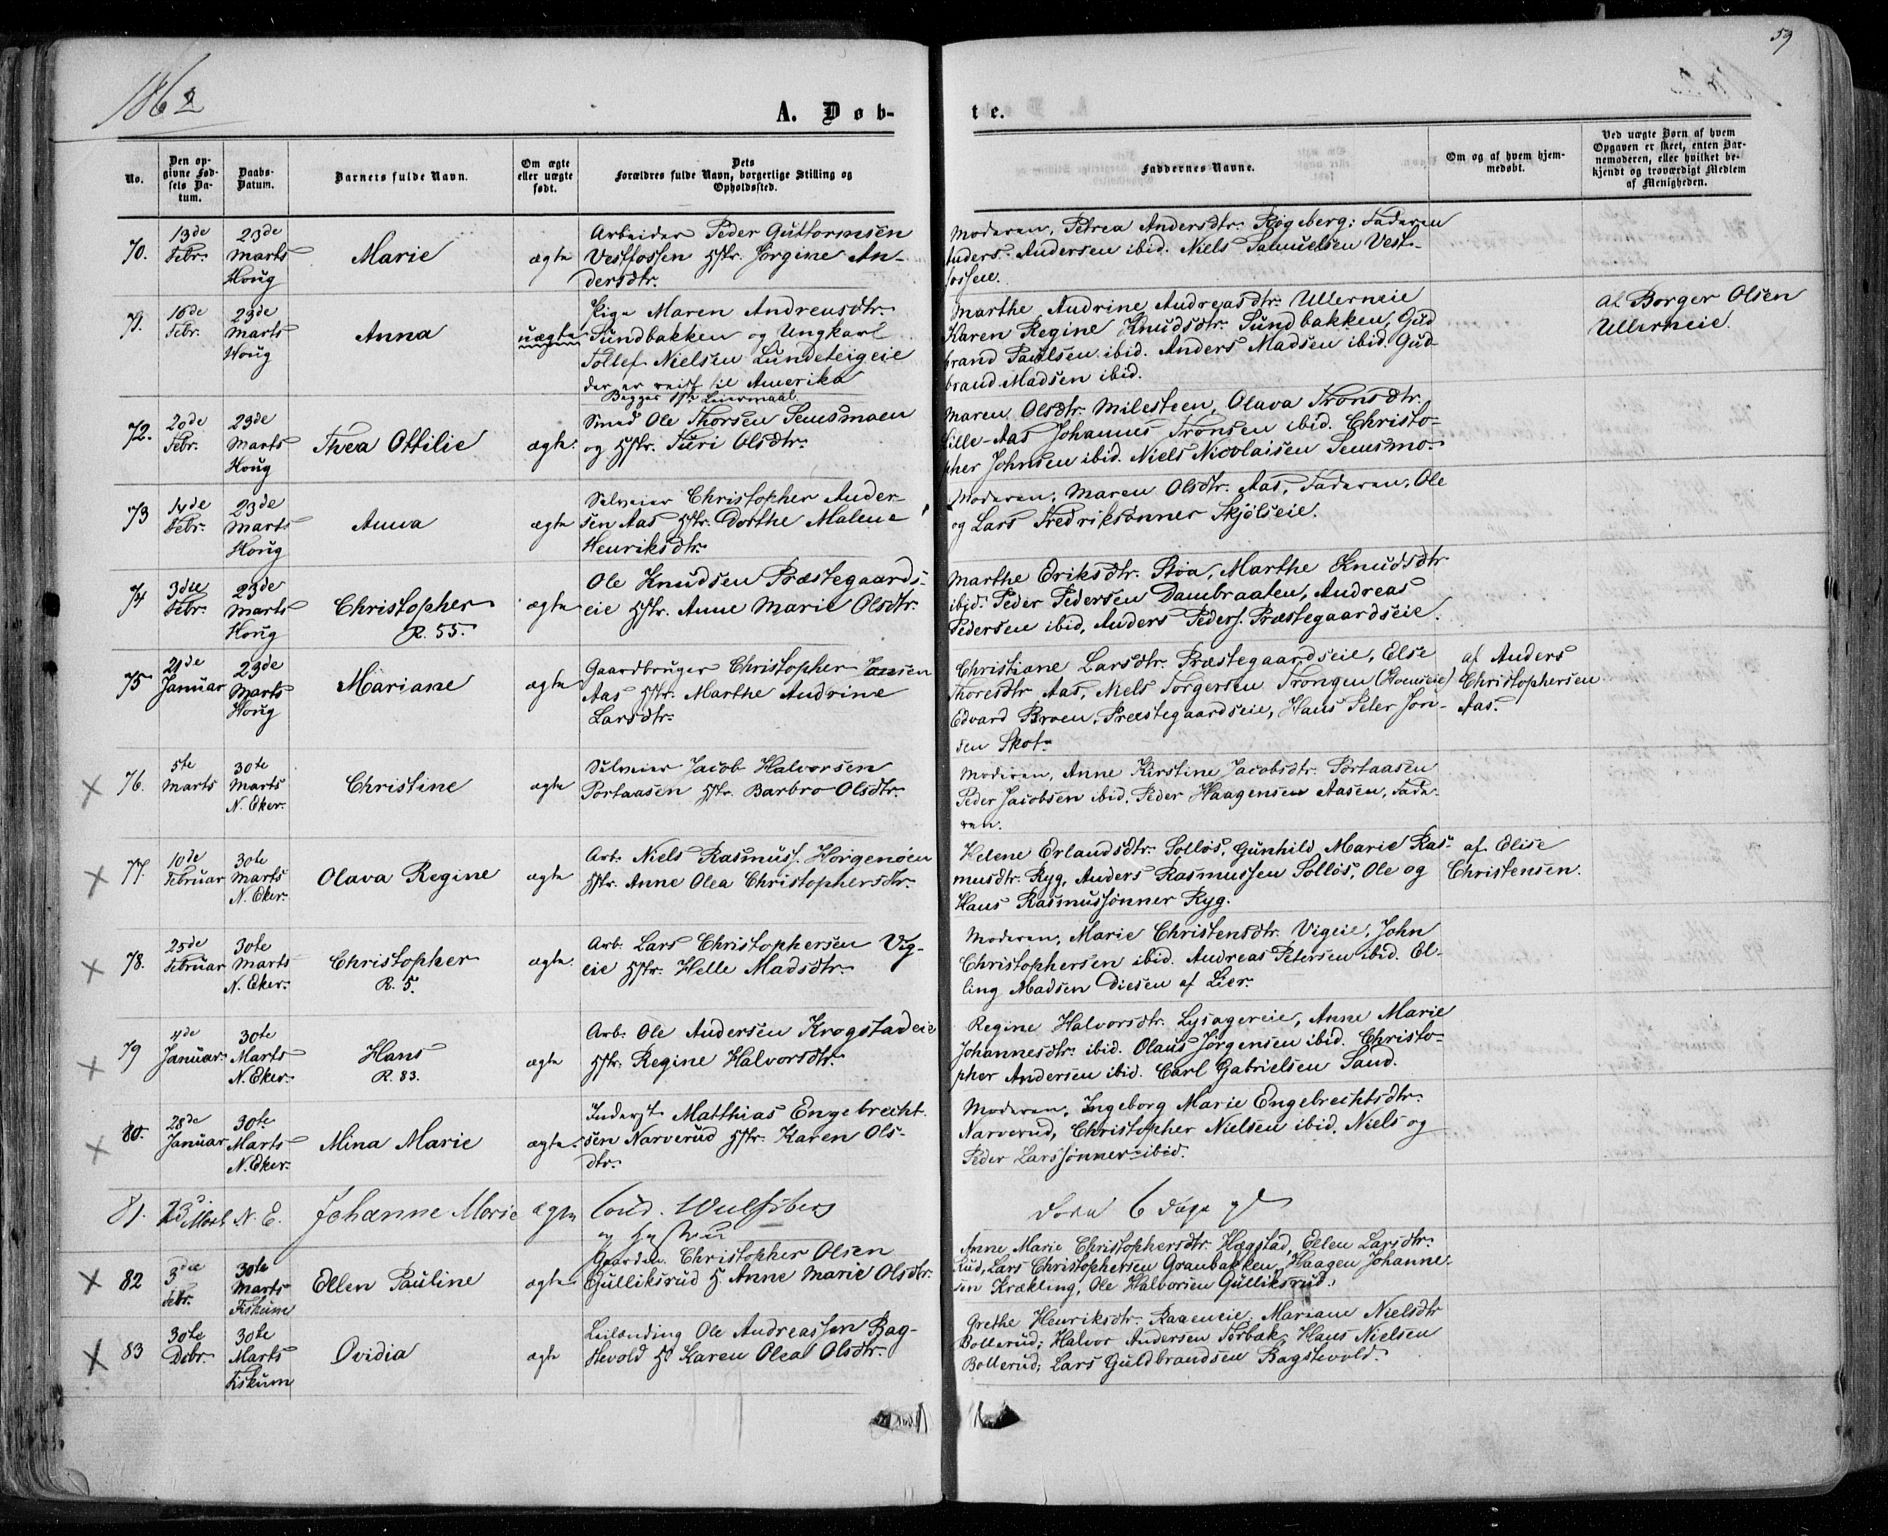 59
1862
A. Døb-
te.
No.
Den op-
givne Fød-
sels Da-
tum.
Daabs-
Datum.
Barnets fulde Navn.
Om ægte
eller uægte
født.
Dets
Forældres fulde Navn, borgerlige Stilling og
Opholdssted.
Faddernes Navne.
Om og af hvem hjem-
medøbt.
Ved uægte Børn af hvem
Opgaven er skeet, enten Bar-
nemoderen, eller hvilket be-
kjendt og troværdigt Medlem
af Menigheden.
70.
13de
Febr.
23de
Marts
Houg
Marie
ægte
Arbeider Peder Guttormsen
Vestfossen Hstr. Jørgine An-
dersdtr.
Moderen, Petrea Andersdtr. Røgeberg; Faderen
Anders Andersen ibid. Niels Samuelsen Vest-
fossen.
71.
16de
Febr.
23de
Marts
Houg
Anna
uægte
Pige Maren Andreasdtr.
Sundbakken og Ungkarl
Tollef Nielsen Lundeteigeie
der er reist til Amerika
Begges 1ste Leiermaal
Marthe Andrine Andreasdtr. Ullerneie
Karen Regine Knudsdtr. Sundbakken, Gud
brand Paulsen ibid. Anders Madsen ibid. Gud-
brand Madsen ibid.
af Borger Olsen
Ullerneie.
72.
20de
Febr.
23de
Marts
Houg
Thea Ottilie
ægte
Smed Ole Thorsen Semsmoen
og Hstr. Turi Olsdtr.
Maren Olsdtr. Milesteen, Olava Tronsdtr.
Lille-Aas Johannes Tronsen ibid. Christo-
pher Johnsen ibid. Niels Nicolaisen Semsmo-
73
14de
Febr.
23de
Marts
Houg
Anna
ægte
Selveier Christopher Ander-
sen Aas Hstr. Dorthe Malene
Henriksdtr.
Moderen, Maren Olsdtr. Aas, Faderen, Ole
og Lars Fredriksønner Skjølseie.
74
3die
Febr.
23de
Marts
Houg
Christopher
R. 55.
ægte
Ole Knudsen Præstegaards-
eie Hstr. Anne Marie Olsdtr.
Marthe Eriksdtr. Støa, Marthe Knudsdtr
ibid. Peder Pedersen Dambraaten, Andreas
Pedersen ibid, Anders Peders. Præstegaardseie.
75
21de
Januar
23de
Marts
Houg
Mariane
ægte
Gaardbruger Christopher Jansen
Aas Hstr. Marthe Andrine
Larsdtr.
Christiane Larsdtr. Præstegaardseie, Else
Thoresdtr Aas, Niels Torgersen Trongen
Edvard Broen, Præstegaardseie, Hans Peter Jon-
sen Skot.
af Anders
Christophersen
Aas.
76.
5te
Marts
30te
Marts
N. Eker.
Christine
ægte
Selveier Jacob Halvorsen
Portaasen Hstr. Barbro Olsdtr.
Moderen, Anne Kirstine Jacobsdtr. Portaasen
Peder Jacobsen ibid. Peder Haagensen Aasen, Fade-
ren.
77.
10de
Februar
30te
Marts
N. Eker.
Olava Regine
ægte
Arb. Niels Rasmuss. Horgenøen
Hstr. Anne Olea Christophersdtr.
Helene Erlandsdtr. Solløs, Gunhild Marie Ras-
musdtr. Ryg, Anders Rasmussen Solløs, Ole og
Hans Rasmussønner Ryg.
af Elise
Christensen.
78.
25de
Februar
30te
Marts
N. Eker.
Christopher
R. 5.
ægte
Arb. Lars Christophersen Vig-
eie Hstr. Helle Madsdtr.
Moderen, Marie Christensdtr. Vigeie, John
Christophersen ibid. Andreas Petersen ibid. El-
ling Madsen Diesen af Lier.
79
4de
Januar.
30te
Marts
N. Eker.
Hans
R. 83.
ægte
Arb. Ole Andersen Krogstadeie
Hstr. Regine Halvorsdtr.
Regine Halvorsdtr. Lysagereie, Anne Marie
Johannesdtr. ibid. Olaus Jørgensen ibid. Christo-
pher Andersen ibid. Carl Gabrielsen Sand.
80.
28de
Januar
30te
Marts
N. Eker.
Mina Marie
ægte
Inderst Matthias Engebrecht-
sen Narverud Hstr. Karen Ols-
dtr.
Moderen, Ingeborg Marie Engebrechtsdtr.
Narverud, Christopher Nielsen ibid. Niels og
Peder Larssønner ibid.
81.
23 d.
Mart
N. E.
Johanne Marie
ægte
Wulfsberg
og Hustru
6 Dage
82
3die
Febr.
30te
Marts
Fiskum
Ellen Pauline
ægte
Gaardm. Christopher Olsen
Gulliksrud H. Anne Marie Olsdtr.
Anne Marie Christophersdtr. Hægstad, Eelen Larsdtr.
Rud, Lars Christophersen Granbakken, Haagen Johanne-
sen Krækling, Ole Halvorsen Gulliksrud.
83
30te
Debr.
30te
Marts
Fiskum
Ovidia
ægte
Leilænding Ole Andreassen Bag-
stevold H. Karen Olea Olsdtr.
Grethe Henriksdtr. Raaeneie, Mariane Nielsdtr
Bollerud; Halvor Andersen Torbæk, Hans Nielsen
Bollerud; Lars Guldbrandsen Bagstevold.